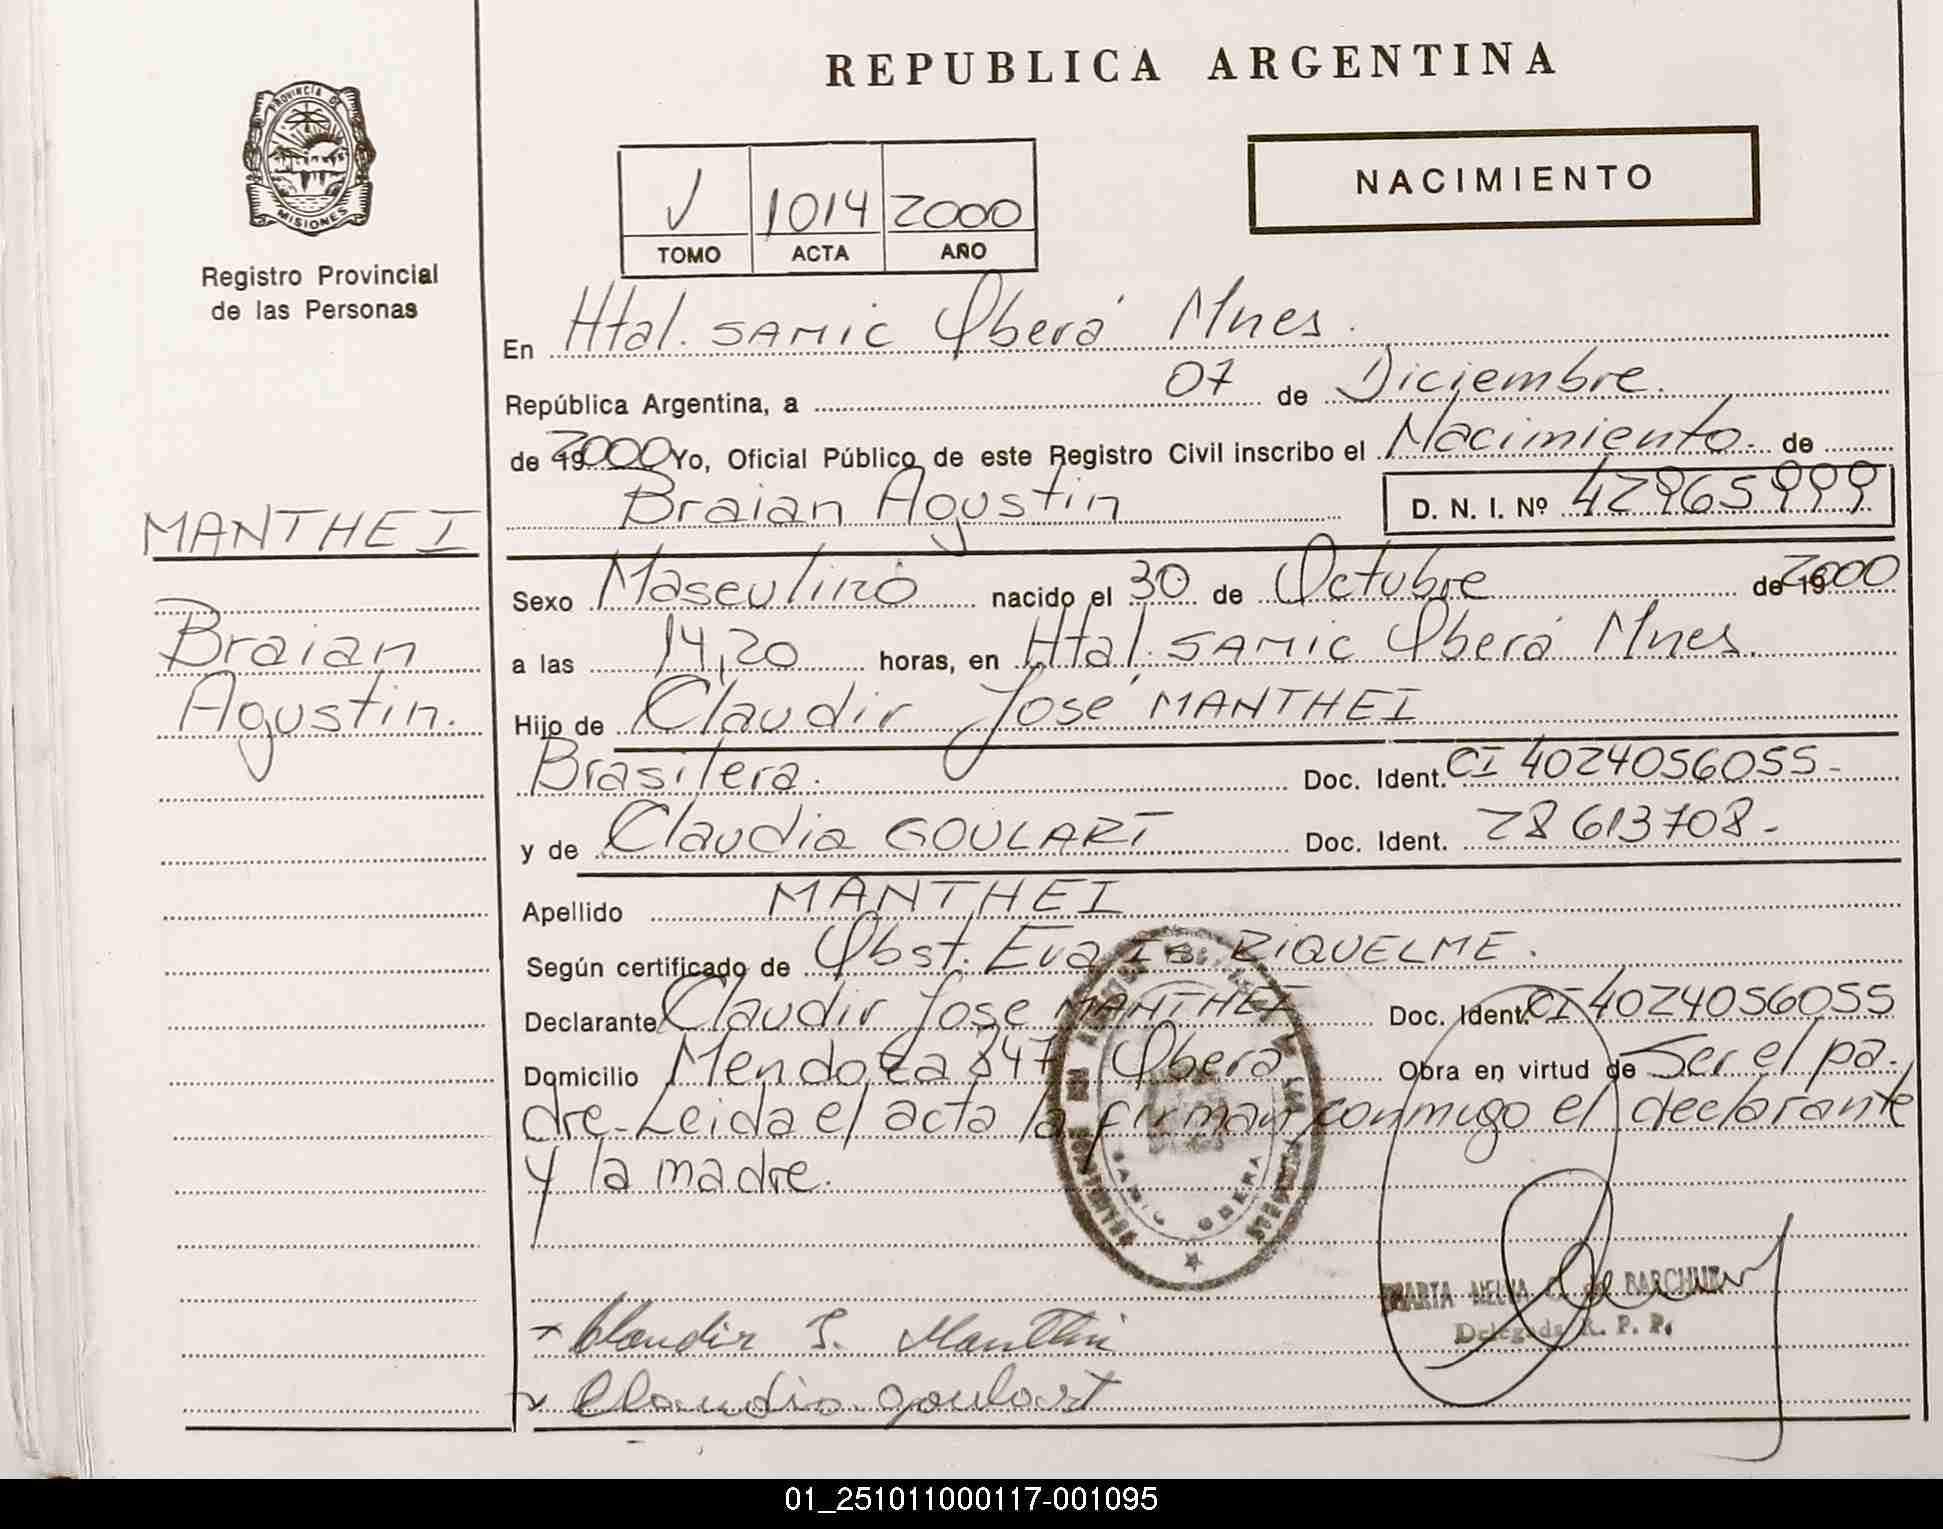 REPUBLICA ARGENTINA
PROVINCIA DE
MISIONES
Registro Provincial
de las Personas
V 1014 2000
TOMO ACTA AÑO
NACIMIENTO
En Htal. SAMIC Oberá Mnes.
República Argentina, a 07 de Diciembre.
de 19 2000 Yo, Oficial Público de este Registro Civil inscribo el Nacimiento. de
Braian Agustin D. N. I. Nº 42965999
MANTHEI
Braian
Agustin.
Sexo Masculino nacido el 30 de Octubre de 19 2000
a las 14,20 horas, en Htal. SAMIC Oberá Mnes.
Hijo de Claudir José MANTHEI
Brasilera. Doc. Ident. CI 4024056055-
y de Claudia GOULART Doc. Ident. 28613708-
Apellido MANTHEI
Según certificado de Obst. Eva RIQUELME.
Declarante Claudir José MANTHEI Doc. Ident. CI 4024056055
Domicilio Mendoza 347 Oberá Obra en virtud de Ser el pa-
dre-Leida el acta la firman conmigo el declarante
y la madre.
SAMIC OBERA
MARTA MELVA C. de BARCHUK
Delegada R. P. P.
Claudir J. Manthei
Claudia goulart
01_251011000117-001095